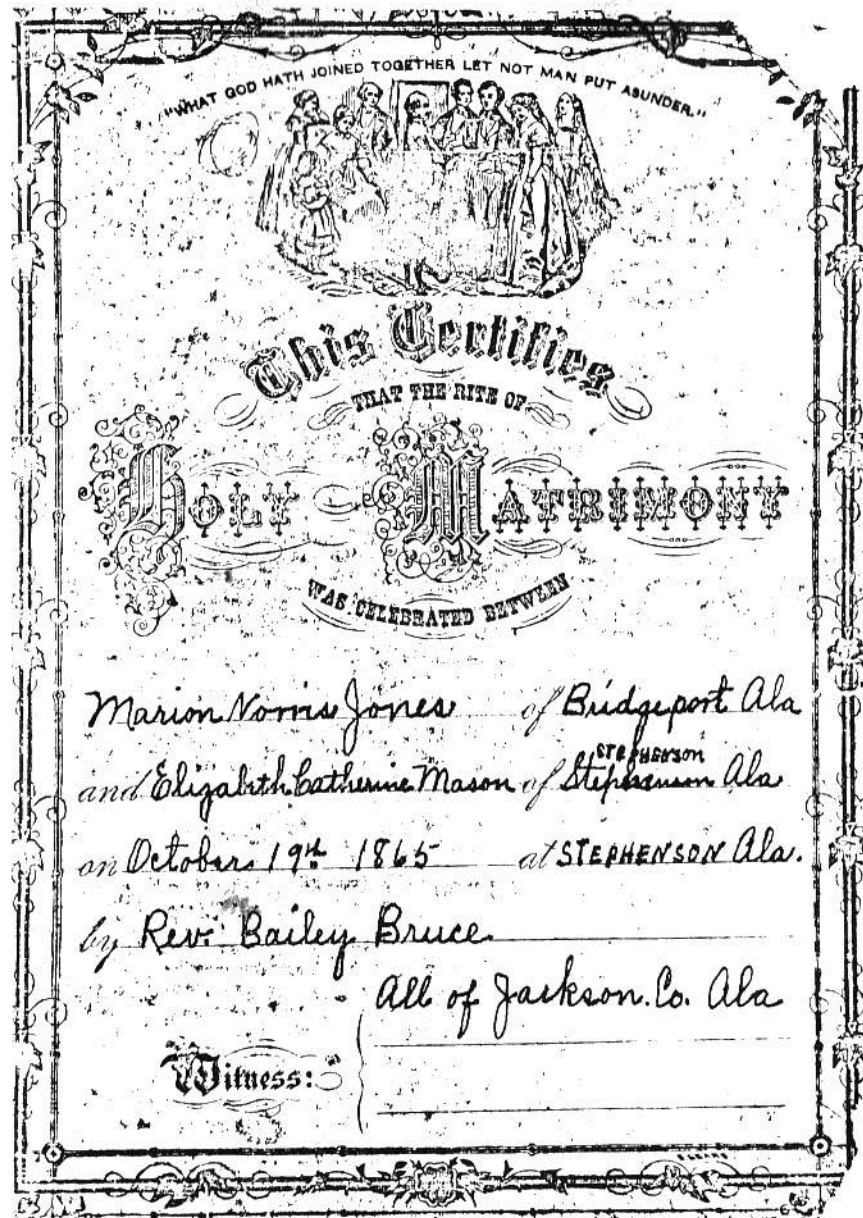 "WHAT GOD HATH JOINED TOGETHER LET NOT MAN PUT ASUNDER."
This Certifies
THAT THE RITE OF
HOLY MATRIMONY
WAS CELEBRATED BETWEEN
Marion Norris Jones of Bridgeport Ala
STEPHENSON
and Elizabeth Catherine Mason of Stephenson Ala
on October 19th 1865 at STEPHENSON Ala.
by Rev. Bailey Bruce
All of Jackson. Co. Ala
Witness: